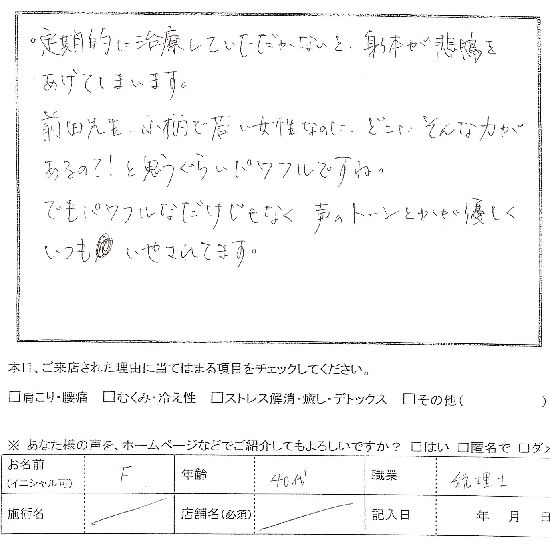 ・定期的に治療していただかないと、身体が悲鳴を
あげてしまいます。
前田先生、小柄で若い女性なのに、どこにそんな力が
あるの?!と思うぐらいパワフルですね。
でもパワフルなだけじゃなく声のトーンとかが優しく
いつも いやされてます。
本日、ご来店された理由に当てはまる項目をチェックしてください。
□肩こり・腰痛 □むくみ・冷え性 □ストレス解消・癒し・デトックス □その他( )
※ あなた様の声を、ホームページなどでご紹介してもよろしいですか? □はい □匿名で □ダメ
お名前 (イニシャル可) F 年齢 40代 職業 税理士
施術名 店舗名(必須) 記入日 年 月 日